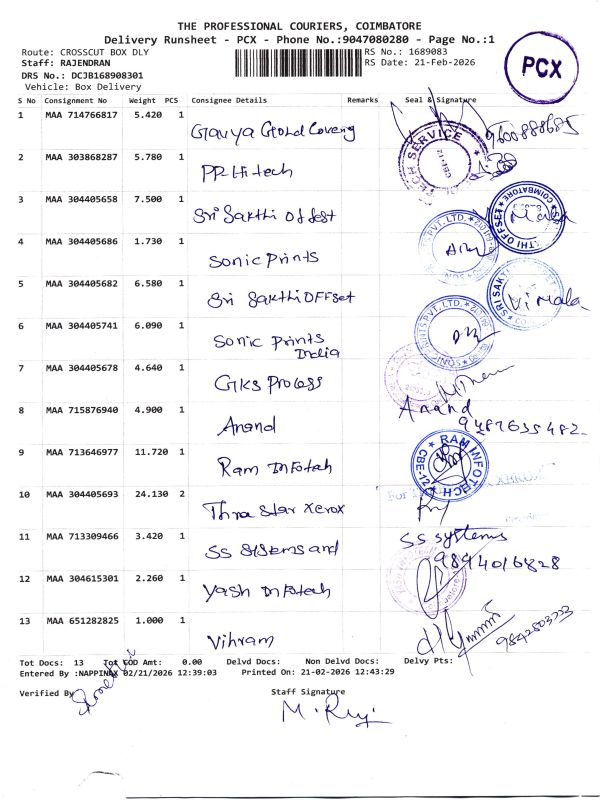 THE PROFESSIONAL COURIERS, COIMBATORE
Delivery Runsheet - PCX - Phone No.:9047080280 - Page No.:1
Route: CROSSCUT BOX DLY
RS No.: 1689083
Staff: RAJENDRAN
RS Date: 21-Feb-2026
DRS No.: DCJB168908301
Vehicle: Box Delivery
PCX
S No Consignment No Weight PCS Consignee Details Remarks Seal & Signature
1 MAA 714766817 5.420 1 Gavya Gold Covering 9600888685
2 MAA 303868287 5.780 1 PP Hitech
3 MAA 304405658 7.500 1 Sri Sakthi Offset Mala
4 MAA 304405686 1.730 1 Sonic Prints
5 MAA 304405682 6.580 1 Sri Sakthi OFFset Vimala
6 MAA 304405741 6.090 1 Sonic Prints
India
7 MAA 304405678 4.640 1 GKS Process
8 MAA 715876940 4.900 1 Anand Anand
9487635482
9 MAA 713646977 11.720 1 Ram Infotah
RAM INFOTECH
CBE-12
10 MAA 304405693 24.130 2 Thra Star Xerox
11 MAA 713309466 3.420 1 SS SYstems and SS systems
9894016828
12 MAA 304615301 2.260 1 Yash Infotech
13 MAA 651282825 1.000 1 Vihram
Tot Docs: 13 Tot COD Amt: 0.00 Delvd Docs: Non Delvd Docs: Delvy Pts:
Entered By :NAPPINAX 02/21/2026 12:39:03 Printed On: 21-02-2026 12:43:29
Verified By
Staff Signature